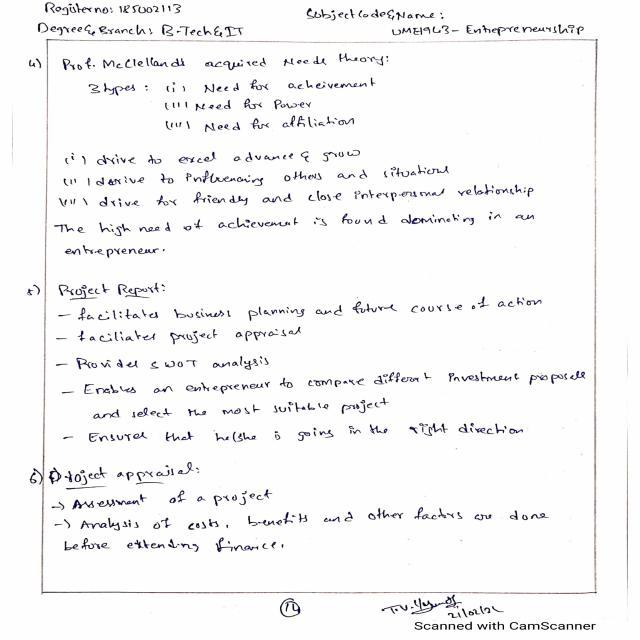 Register no: 185002113
Subject Code & Name:
Degree & Branch: B-Tech & IT
UME1963- Entrepreneurship
4) Prof. McClelland's acquired Needs theory:
3 types : (i) Need for acheivement
(ii) Need for Power
(iii) Need for affiliation
(i) drive to excel advance & grow
(ii) derive to influencing others and situations
(iii) drive for friendly and close interpersonal relationship
The high need of achievement is found dominating in an
entrepreneur.
5) Project Report:
- facilitates business planning and future course of action
- faciliates project appraisal
- Provides SWOT analysis
- Enables an entrepreneur to compare different investment proposals
and select the most suitable project
- Ensures that he/she is going in the right direction
6) Project appraisal:
→ Assessment of a project
→ Analysis of costs, benefits and other factors are done
before extending finance.
Scanned with CamScanner